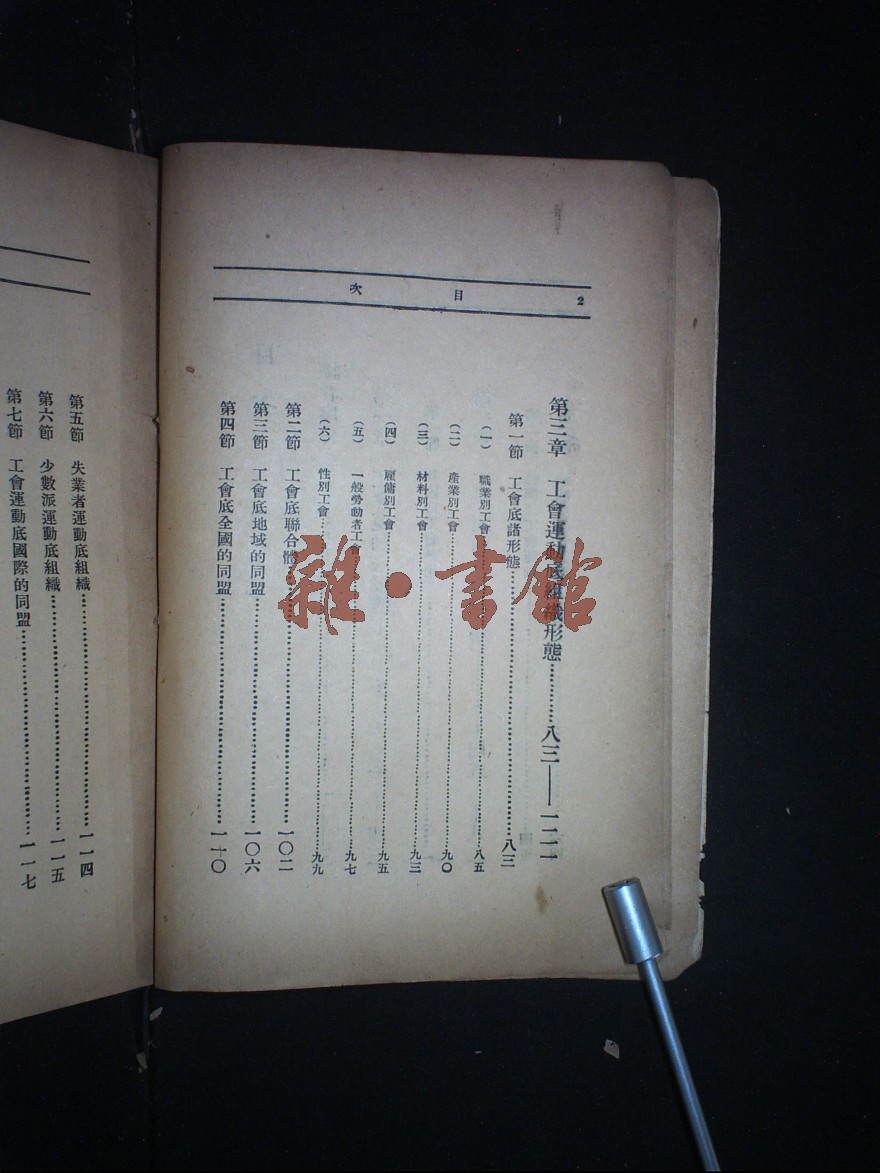 2 目次
第三章 工會運動底組織形態…………八三——一二一
第一節 工會底諸形態…………八三
(一) 職業別工會…………八五
(二) 產業別工會…………九〇
(三) 材料別工會…………九三
(四) 雇傭別工會…………九五
(五) 一般勞動者工會…………九七
(六) 性別工會…………九九
第二節 工會底聯合體…………一〇二
第三節 工會底地域的同盟…………一〇六
第四節 工會底全國的同盟…………一一〇
第五節 失業者運動底組織…………一一四
第六節 少數派運動底組織…………一一五
第七節 工會運動底國際的同盟…………一一七
雜·書館